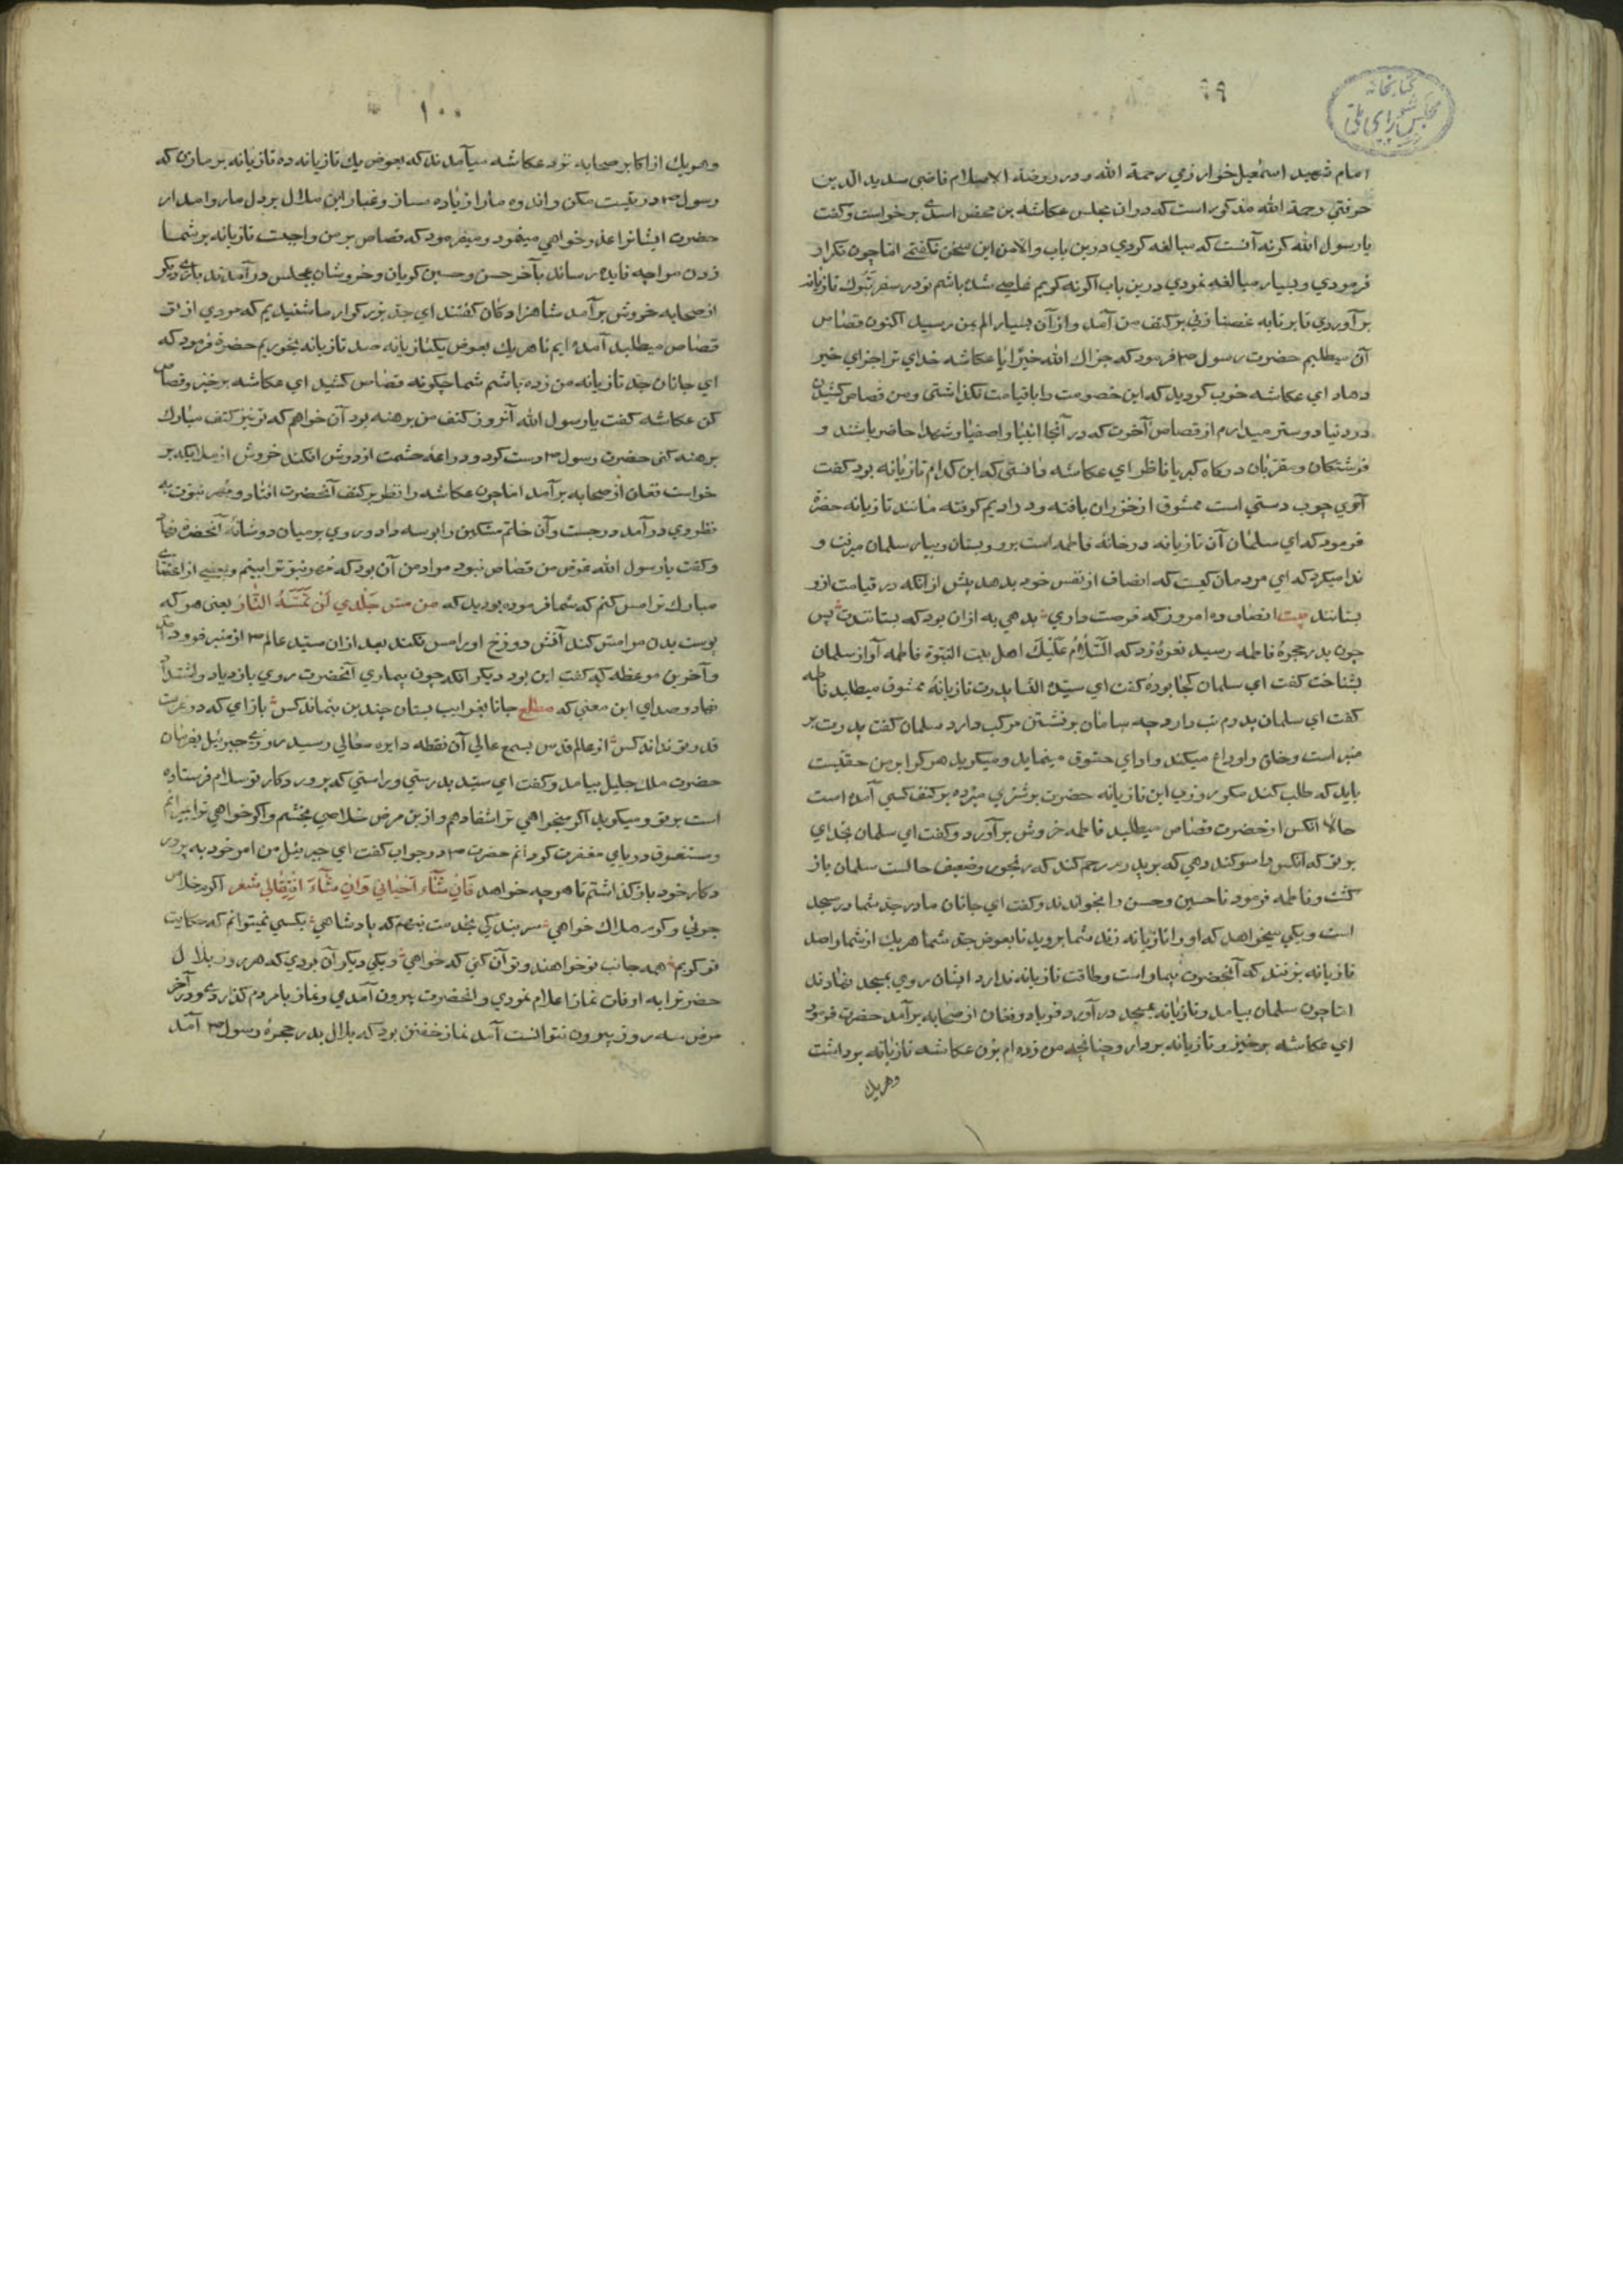 ۹۹
کتابخانه
مجلس شورای ملی
امام شهید اسمعیل خوارزمي رحمة الله و در روضة الاسلام قاضی سدید الدین
حرفتي رحمة الله مذکور است که در ان مجلس عکاشه بن محض اسدي برخواست و کفت
یا رسول الله کرنه آنست که مبالغه کردي درین باب والا من این سخن نکفتمي اما چون تکرار
فرمودي و بسیار مبالغه نمودي درین باب اکر نه کویم عاصي شده باشم تو در سفر تبوك تازیانه
بر آوردي تا بر ناقه غضبا زني بر کتف من آمد و از آن بسیار الم بمن رسید اکنون قصاص
آن میطلبم حضرت رسول فرمود که جزاك الله خیرًا یا عکاشه خداي ترا جزاي خیر
دهاد اي عکاشه خوب کردید که این خصومت را با قیامت نکذاشتي و من قصاص کشیدن
در دنیا دوستر میدارم از قصاص آخرت که در آنجا انبیا و اصفیا و شهدا حاضر باشند و
فرشتکان و مقرّبان درکاه کبریا ناظر اي عکاشه دانستي که این کدام تازیانه بود کفت
آري چوب دستي است ممشوق از خیزران بافته و در ادیم کرفته مانند تازیانه حضرة
فرمود که اي سلمان آن تازیانه در خانهٔ فاطمه است برو و بستان و بیار سلمان میرفت و
ندا میکرد که اي مردمان کیست که انصاف از نفس خود بدهد پیش از انکه در قیامت ازو
بستانند بیت انصاف ده امروز که فرصت داري بدهي به ازان بود که بستانندت پس
چون بدر حجرهٔ فاطمه رسید نعرهٔ زد که السّلام علیك اهل بیت النبوّة فاطمه آواز سلمان
بشناخت کفت اي سلمان کجا بودهٔ کفت اي سیّدة النسا پدرت تازیانهٔ ممشوق میطلبد فاطمه
کفت اي سلمان پدرم تب دارد چه سامان برنشستن مرکب دارد سلمان کفت پدرت بر
منبر است و خلق را وداع میکند و اداي حقوق مینماید و میکوید هر کرا بر من حقیست
باید که طلب کند مکر روزي این تازیانه حضرت بر شتري میزده بر کتف کسي آمده است
حالا انکس از حضرت قصاص میطلبد فاطمه خروش برآورد و کفت اي سلمان بخداي
بر تو که انکس را سوکند دهي که بر پدرم رحم کند که رنجور و ضعیف حالست سلمان باز
کشت و فاطمه فرمود تا حسین و حسن را بخواندند و کفت اي جانان مادر جدّ شما در مسجد
است و یکي میخواهد که او را تازیانه زند شما بروید تا بعوض جدّ شما هر یك از شما را صد
تازیانه بزنند که آنحضرت بیمار است و طاقت تازیانه ندارد ایشان روي بمسجد نهادند
اما چون سلمان بیامد و تازیانه بمسجد در آورد فریاد و فغان از صحابه برآمد حضرت فرمود
اي عکاشه برخیز و تازیانه بردار و چنانچه من زده ام بزن عکاشه تازیانه برداشت
و هر یك
۱۰۰
و هر یك از اکابر صحابه نزد عکاشه میآمدند که بعوض یك تازیانه ده تازیانه بر ما زن که
رسول در تبست مکن و اندوه ما را زیاده مساز و غبار این ملال بر دل ما روا مدار
حضرت ایشانرا عذر خواهي مینمود و میفرمود که قصاص بر من واجبست تازیانه بر شما
زدن مرا چه فایده رساند بآخر حسن و حسین کریان و خروشان بمجلس در آمدند باري دیکر
از صحابه خروش برآمد شاهزادکان کفتند اي جدّ بزرکوار ما شنیدیم که مردي از تو
قصاص میطلبد آمده ایم تا هر یك بعوض یکتازیانه صد تازیانه بخوریم حضرة فرمود که
اي جانان جدّ تازیانه من زده باشم شما چکونه قصاص کشید اي عکاشه برخیز و قصاص
کن عکاشه کفت یا رسول الله آنروز کتف من برهنه بود آن خواهم که تو نیز کتف مبارك
برهنه کني حضرت رسول دست کرد و ردا عه حشمت از دوش افکند خروش از ملایکه بر
خواست فغان از صحابه برآمد اما چون عکاشه را نظر بر کتف آنحضرت افتاد و مهر نبوّت به
نظر وي در آمد در جست و آن خاتم مشکین را بوسه داد و روي بر میان دو شانهٔ آنحضرة نهاد
و کفت یا رسول الله غرض من قصاص نبود مراد من آن بود که مهر نبوّت ترا ببینم و بعضي از اعضاي
مبارك ترا مس کنم که شما فرموده بودید که من مسّ جلدي لن تمسّه النّار یعنی هر که
پوست بدن مرا مس کند آتش دوزخ او را مس نکند بعد ازان سیّد عالم از منبر فرود آمد
و آخرین موعظه که کفت این بود دیکر انکه چون بیماري آنحضرت روي بازدیاد و اشتداد
نهاد و صداي این معني که مطلع جانا بغرایب بستان چندین بنماند کس باز آي که در غربت
قدر تو نداند کس از عالم قدس بسمع عالي آن نقطه دایره معالي رسید روزي جبرئیل بفرمان
حضرت ملك جلیل بیامد و کفت اي سیّد بدرستي و راستي که پروردکار تو سلام فرستاده
است بر تو و میکوید اکر میخواهي ترا شفا دهم و ازین مرض خلاصي بخشم و اکر خواهي ترا بمیرانم
و مستغرق دریاي مغفرت کردانم حضرت در جواب کفت اي جبرئیل من امر خود به پرور
دکار خود باز کذاشتم تا هر چه خواهد فان شآء احیاني وان شآء افناني شعر اکرم خلاص
جوئي و کرم هلاك خواهي سر بندکي بخدمت بنهم که پادشاهي بکسي نمیتوانم که حکایت
تو کویم همه جانب تو خواهند و تو آن کني که خواهي و یکي دیکر آن بودي که هر روز بلال
حضرترا به اوقات نماز اعلام نمودي و انحضرت بیرون آمدي و نماز با مردم کذاردي و در آخر
مرض سه روز بیرون نتوانست آمد نماز خفتن بود که بلال بدر حجرهٔ رسول آمد